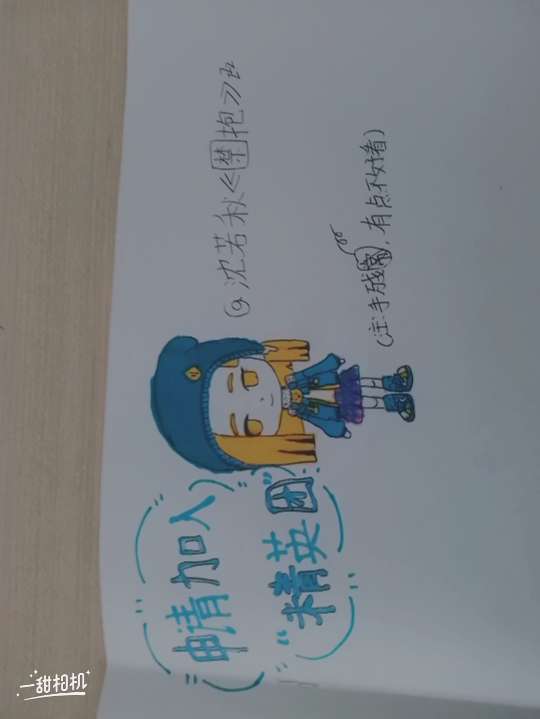 申请加入
"精英团"
@沈若秋<禁抱>
(注:手残党,有点不好看)
一甜相机